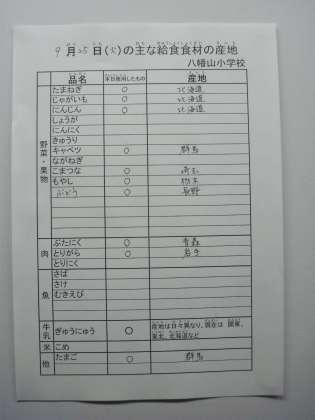 9月25日(火)の主な給食食材の産地
八幡山小学校
品名 本日使用したもの 産地
野菜・果物
たまねぎ ○ 北海道
じゃがいも ○ 北海道
にんじん ○ 北海道
しょうが
にんにく
きゅうり
キャベツ ○ 群馬
ながねぎ
こまつな ○ 埼玉
もやし ○ 栃木
ぶどう ○ 長野
肉
ぶたにく ○ 青森
とりがら ○ 岩手
とりにく
魚
さば
さけ
むきえび
牛乳 ぎゅうにゅう ○ 産地は日々異なり、現在は 関東、
東北、北海道など
米 こめ
他 たまご ○ 群馬